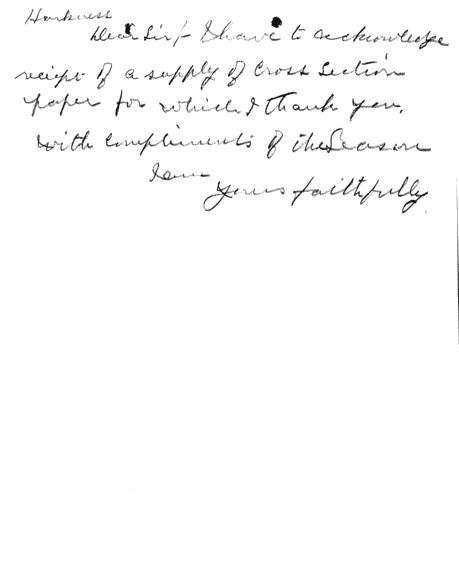 Harkness
Dear Sir/- I have to acknowledge
reciept of a supply of Cross Section
paper for which I thank you.
with compliments of the Season
I am
yours faithfully